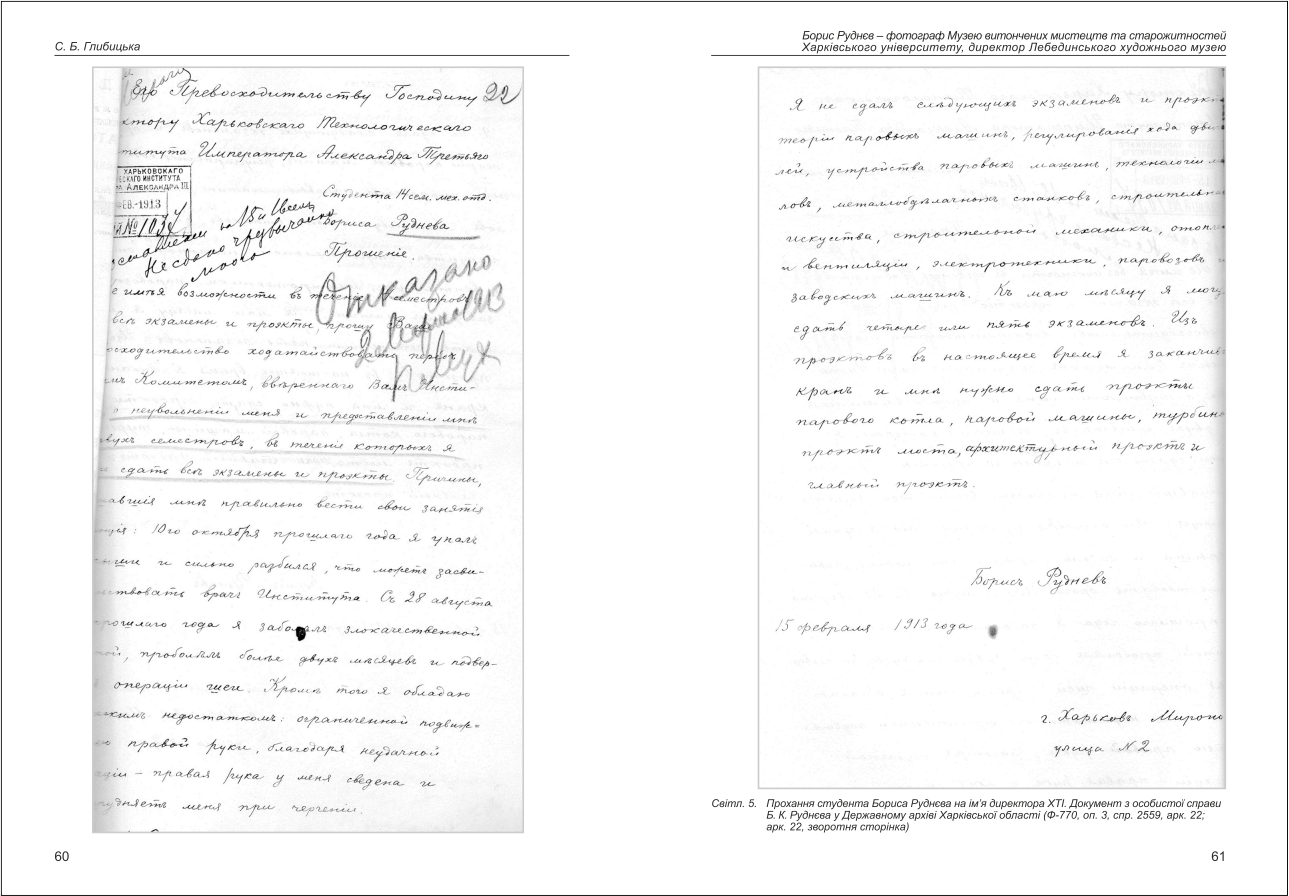 С. Б. Глибицька
22
Его Превосходительству Господину
ктору Харьковскаго Технологическаго
титута Императора Александра Третьяго
ХАРЬКОВСКАГО
ЕСКАГО ИНСТИТУТА
РА АЛЕКСАНДРА III
ЕВ.-1913
Й № 1034
Студента 14 сем. мех. отд.
Бориса Руднева
Прошеніе.
Не сдано чрезвычайно
много
Отказано
е имѣя возможности въ теченіе семестровъ
всѣ экзамены и проэкты прошу Ваше
осходительство ходатайствовать передъ
имъ Комитетомъ, ввѣреннаго Вамъ Инсти-
о неувольненіи меня и предоставленіи мнѣ
двухъ семестровъ, въ теченіе которыхъ я
сдать всѣ экзамены и проэкты. Причины,
шавшія мнѣ правильно вести свои занятія
ющія: 10го октября прошлаго года я упалъ
и сильно разбился, что можетъ засви-
тствовать врачъ Института. Съ 28 августа
прошлаго года я заболѣлъ злокачественной
ной, проболѣлъ болѣе двухъ мѣсяцевъ и подвер-
операціи шеи. Кромѣ того я обладаю
скимъ недостаткомъ: ограниченной подвиж-
ю правой руки, благодаря неудачной
ціи – правая рука у меня сведена и
удняетъ меня при черченіи.
60
Борис Руднєв – фотограф Музею витончених мистецтв та старожитностей
Харківського університету, директор Лебединського художнього музею
Я не сдалъ слѣдующихъ экзаменовъ и проэкт
теоріи паровыхъ машинъ, регулированія хода двиг
лей, устройства паровыхъ машинъ, технологіи м
ловъ, металлобдѣлачныхъ станковъ, строительна
искуства, строительной механики, отопл
и вентиляціи, электротехники, паровозовъ и
заводскихъ машинъ. Къ маю мѣсяцу я могу
сдать четыре или пять экзаменовъ. Изъ
проэктовъ въ настоящее время я заканчив
кранъ и мнѣ нужно сдать проэкты
парового котла, паровой машины, турбины
проэктъ моста, архитектурный проэктъ и
главный проэктъ.
Борисъ Рудневъ
15 февраля 1913 года
г. Харьковъ Мироно
улица N 2
Світл. 5. Прохання студента Бориса Руднєва на ім’я директора ХТІ. Документ з особистої справи
Б. К. Руднєва у Державному архіві Харківської області (Ф-770, оп. 3, спр. 2559, арк. 22;
арк. 22, зворотня сторінка)
61